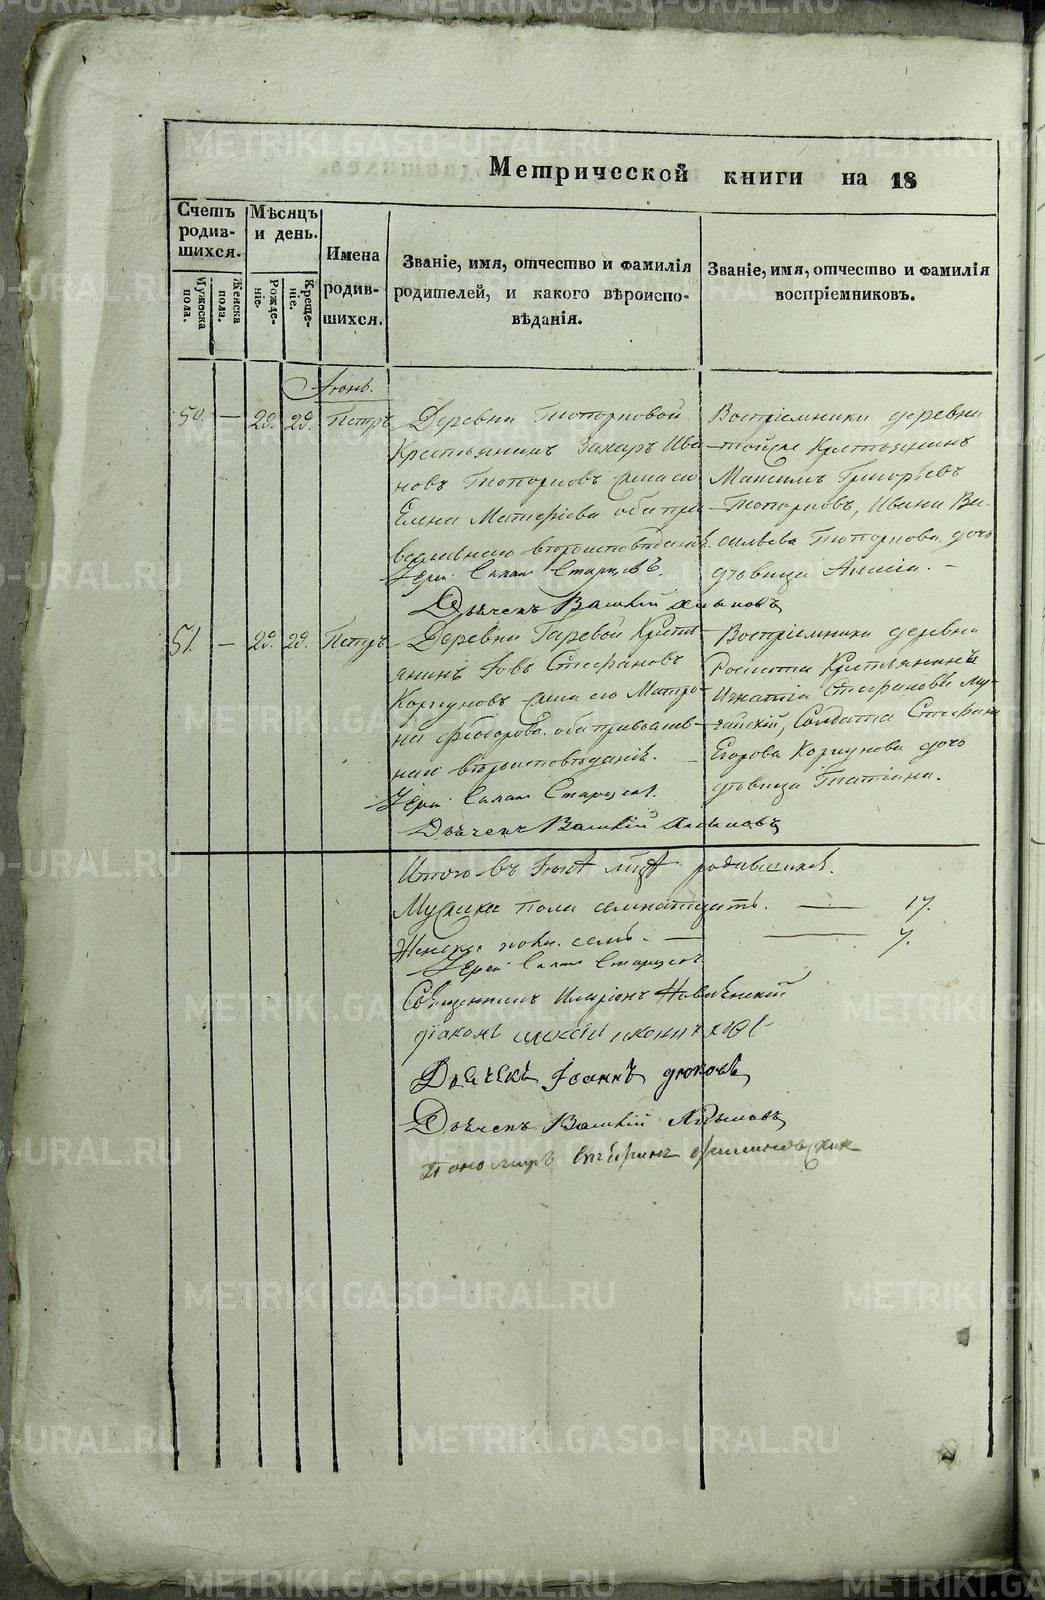 Метрической книги на 18
Счетъ родив-шихся.
Мужеска пола.
Женска пола.
Мѣсяцъ и день.
Рожде-ніе.
Креще-ніе.
Имена родив-шихся.
Званіе, имя, отчество и фамилія
родителей, и какого вѣроиспо-
вѣданія.
Званіе, имя, отчество и фамилія
воспріемниковъ.
Іюнь.
50. — 29. 29. Петръ
Деревни Топорковой
Крестьянинъ Захаръ Ива
новъ Топорковъ жена его
Елена Матфіева оба пра
вославнаго вѣроисповѣданія.
Іерей Старцевъ.
Дьячекъ Василій
Воспріемники деревни
тойже Крестьянинъ
Максимъ Григорьевъ
Топорковъ, Ивана Ва-
сильева Топоркова дочь
дѣвица Анисія. —
51. — 29. 29. Петръ
Деревни Гаревой Кресть
янинъ Іовъ Стефановъ
Коршуновъ жена его Матро-
на Ѳеодорова оба православ-
наго вѣроисповѣданія. —
Іерей Старцевъ.
Дьячекъ Василій
Воспріемники деревни
Крестьянинъ
Игнатій Стефановъ
Солдата Стефана
Егорова Коршунова дочь
дѣвица Татіана.
Итого въ Іюнѣ родившихся.
Мужеска пола семнатцать. — 17.
Женска пола семь. — 7.
Іерей Старцевъ
Священникъ Иларіонъ
діаконъ Алексій
Дьячекъ Іоаннъ Дюковъ
Дьячекъ Василій
Пономарь
METRIKI.GASO-URAL.RU